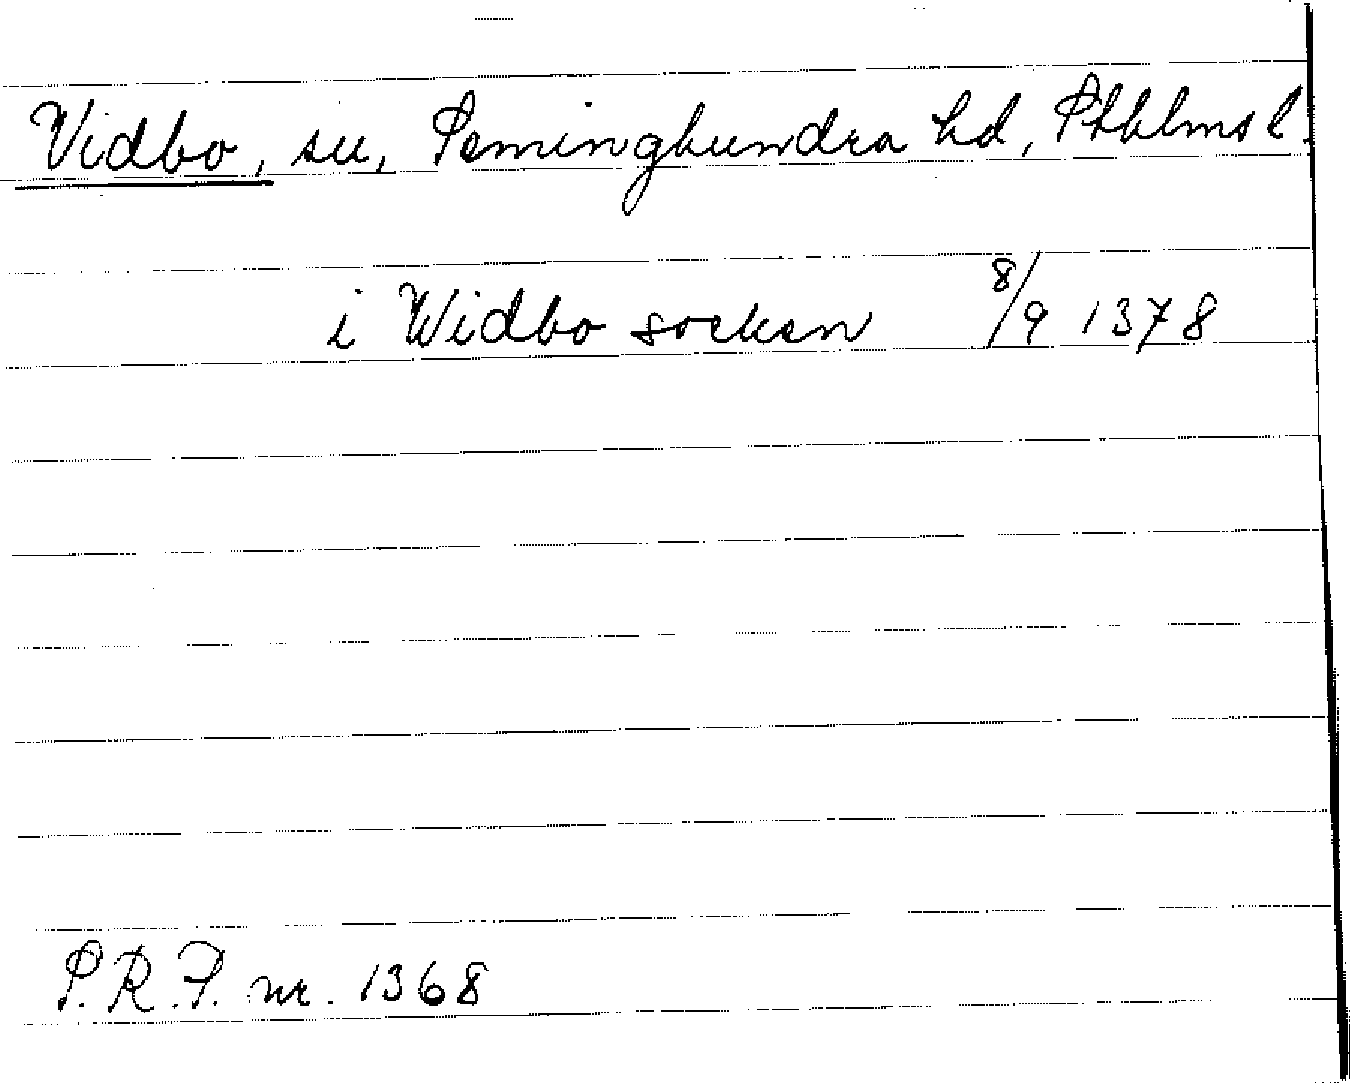 Vidbo, sn, Seminghundra hd, Sthlms l.
i Widbo socken 8/9 1378
S.R.P. nr. 1368